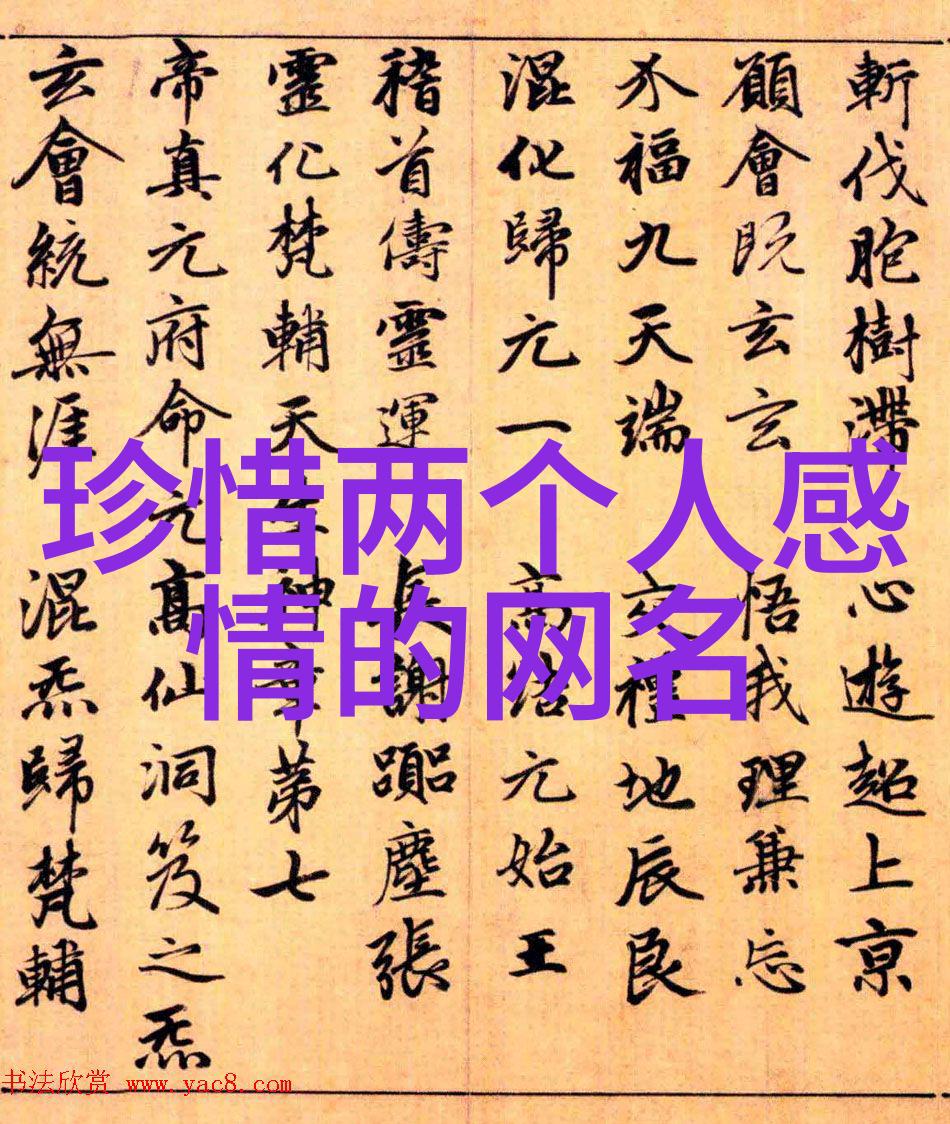 斬伐胞樹滯 心遊超上京
願會既玄玄 悟我理兼忘
介福九天端 交禮地辰良
混化歸元一 高結元始王
稽首儔靈運 長謝躡塵張
靈化梵輔天 生神章第七
帝真元府命元高仙洞笈之炁
玄會統無涯 混炁歸梵輔
珍惜两个人感
情的网名
书法欣赏 www.yac8.com